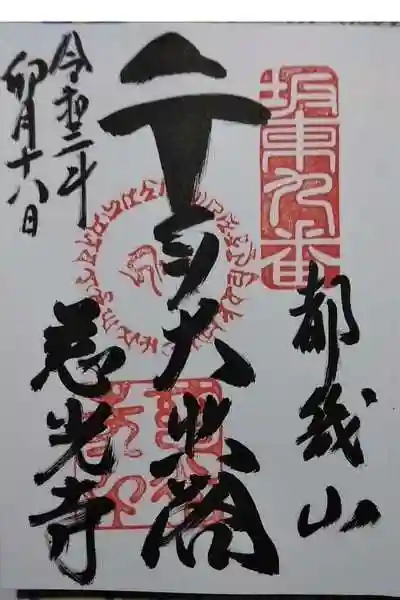 坂東九番
都幾山
千手大悲閣
慈光寺
令和三年
卯月十八日